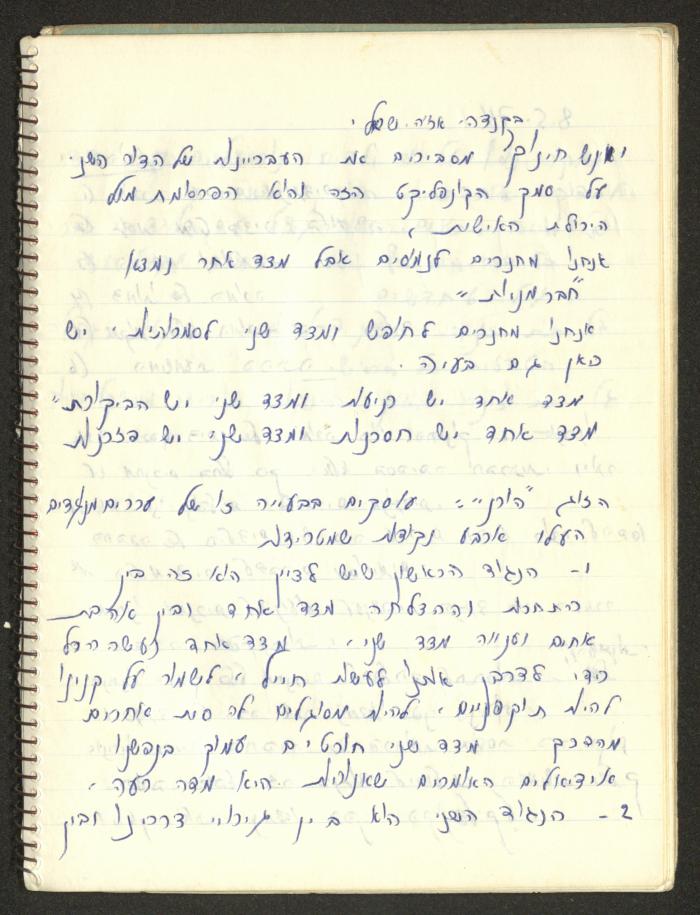 בקנדה. ארה.
מסבירים את העבריינות של הדור השני
על סמך הקונפליקט הזה והיא הפרסומת מול
היכולת האישית.
אנחנו מחנכים לנימוסים אבל מצד אחר נמצא
"חברמניות"
אנחנו מחנכים לחופש ומצד שני לסמכותיות, יש
כאן גם בעיה.
מצד אחד יש קביעות ומצד שני יש הביקורת
מצד אחד יש חסכנות ומצד שני יש פזרנות
הזוג "הורני" עוסקים בבעייה זו של ערכים מנוגדים
העלו ארבע נקודות שמטרידות
1- הנגוד הראשון שיש לציין הוא זה בין
התחרות וההצלחה מצד אחד ובין אהבת
אחים וענווה מצד שני, מצד אחד נעשה הכל
כידי לדרבן אותנו לעשות חייל לשמור על קנינו
להיות תוקפניים, להיות מסוגלים לה סית אחרים
מהדרך ומצד שני חורטים עמוק בנפשנו
אידיאלים האומרים שאנוכיות היא מדה רעה,
2- הנגוד השני הוא בין גירויי צרכינו ובין